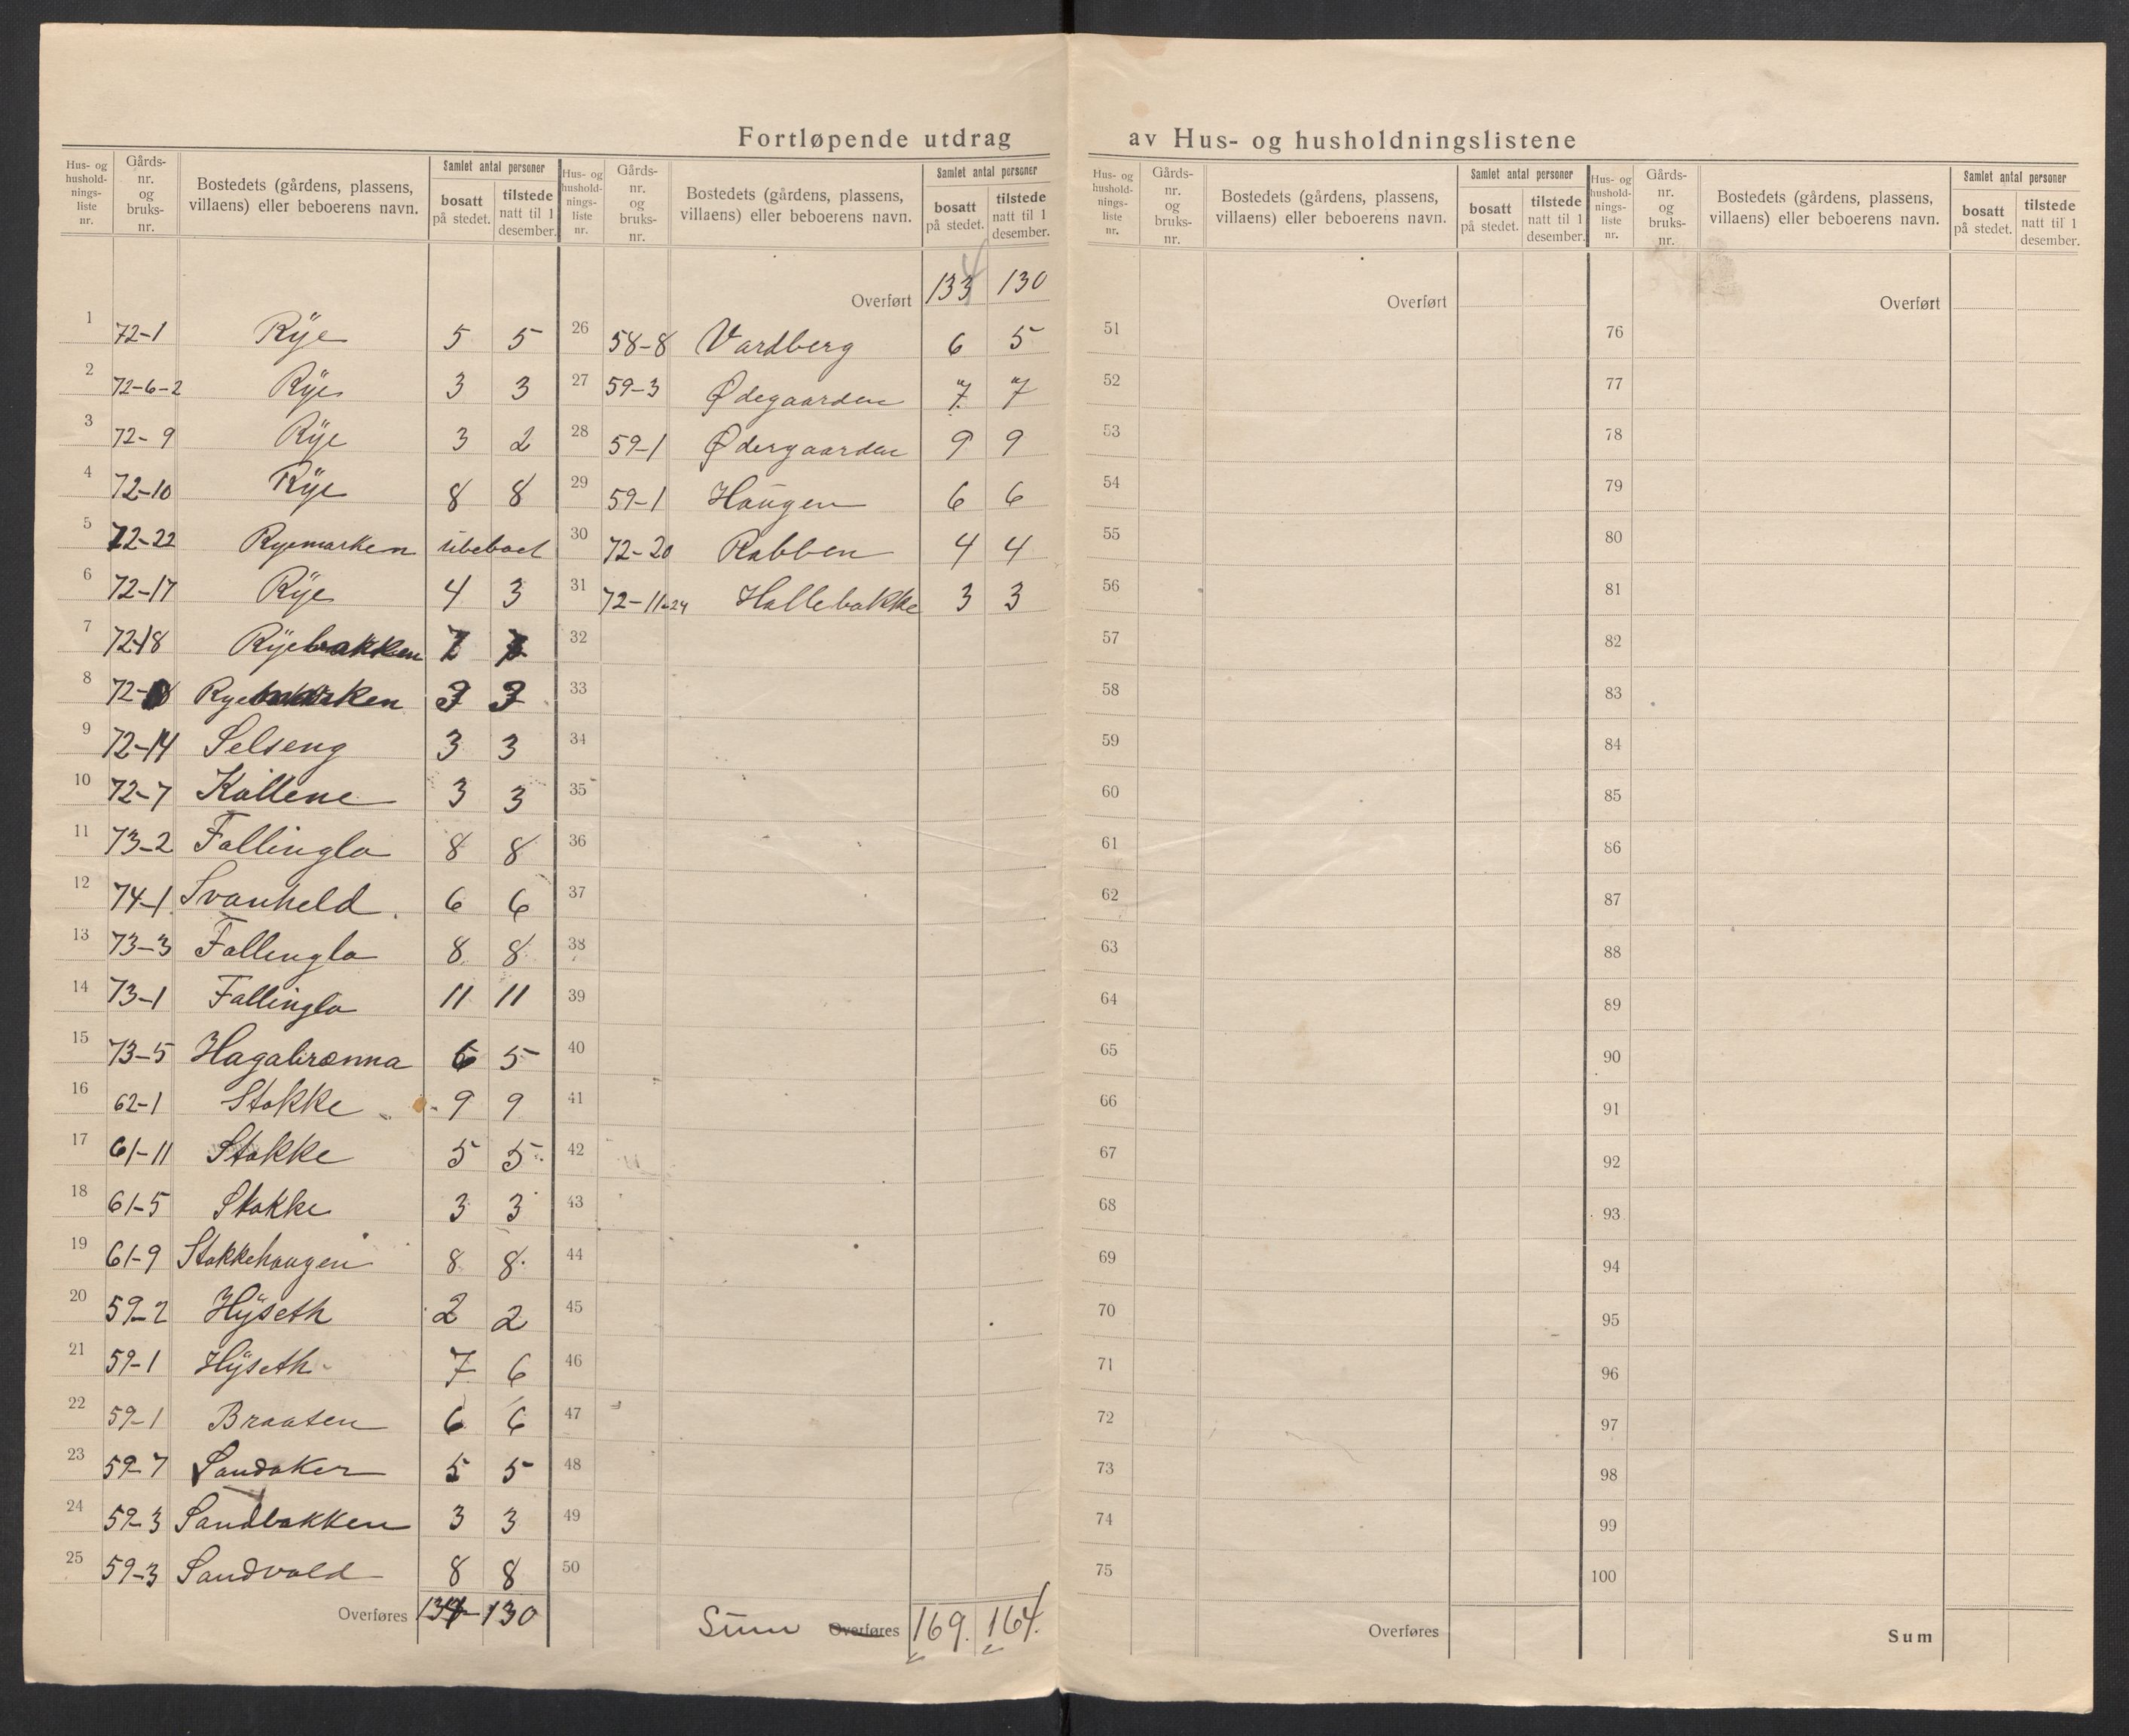 Fortløpende utdrag av Hus- og husholdningslistene
Hus- og hushold-nings-liste nr. Gårds-nr. og bruks-nr. Bostedets (gårdens, plassens, villaens) eller beboerens navn. Samlet antal personer bosatt på stedet. tilstede natt til 1 desember.
1 72-1 Rÿe 5 5
2 72-6-2 Rÿe 3 3
3 72-9 Rÿe 3 2
4 72-10 Rÿe 8 8
5 72-22 Ryemarken ubeboet
6 72-17 Rÿe 4 3
7 72-18 Rÿebakken
8 72- 3 3
9 72-14 Selseng 3 3
10 72-7 Kollene 3 3
11 73-2 Fallingla 8 8
12 74-1 Svanheld. 6 6
13 73-3 Fallengla 8 8
14 73-1 Fallingla 11 11
15 73-5 Hagabrænna 6 5
16 62-1 Stokke 9 9
17 61-11 Stokke 5 5
18 61-5 Stokke 3 3
19 61-9 Stokkehaugen 8 8
20 59-2 Hÿseth 2 2
21 59-1 Hÿseth 7 6
22 59-1 Braaten 6 6
23 59-7 Sandaker 5 5
24 59-3 Sandbakken 3 3
25 59-3 Sandvold 8 8
Overføres 134 130
Hus- og hushold-nings-liste nr. Gårds-nr. og bruks-nr. Bostedets (gårdens, plassens, villaens) eller beboerens navn. Samlet antal personer bosatt på stedet. tilstede natt til 1 desember.
Overført 133 4 130
26 58-8 Vardberg 6 5
27 59-3 Ødegaarden 7 7
28 59-1 Ødergaarden 9 9
29 59-1 Haugen 6 6
30 72-20 Rabben 4 4
31 72-11-24 Hallebakke 3 3
32
33
34
35
36
37
38
39
40
41
42
43
44
45
46
47
48
49
50
Sum Overføres 169. 164.
Hus- og hushold-nings-liste nr. Gårds-nr. og bruks-nr. Bostedets (gårdens, plassens, villaens) eller beboerens navn. Samlet antal personer bosatt på stedet. tilstede natt til 1 desember.
Overført
51
52
53
54
55
56
57
58
59
60
61
62
63
64
65
66
67
68
69
70
71
72
73
74
75
Overføres
Hus- og hushold-nings-liste nr. Gårds-nr. og bruks-nr. Bostedets (gårdens, plassens, villaens) eller beboerens navn. Samlet antal personer bosatt på stedet. tilstede natt til 1 desember.
Overført
76
77
78
79
80
81
82
83
84
85
86
87
88
89
90
91
92
93
94
95
96
97
98
99
100
Sum